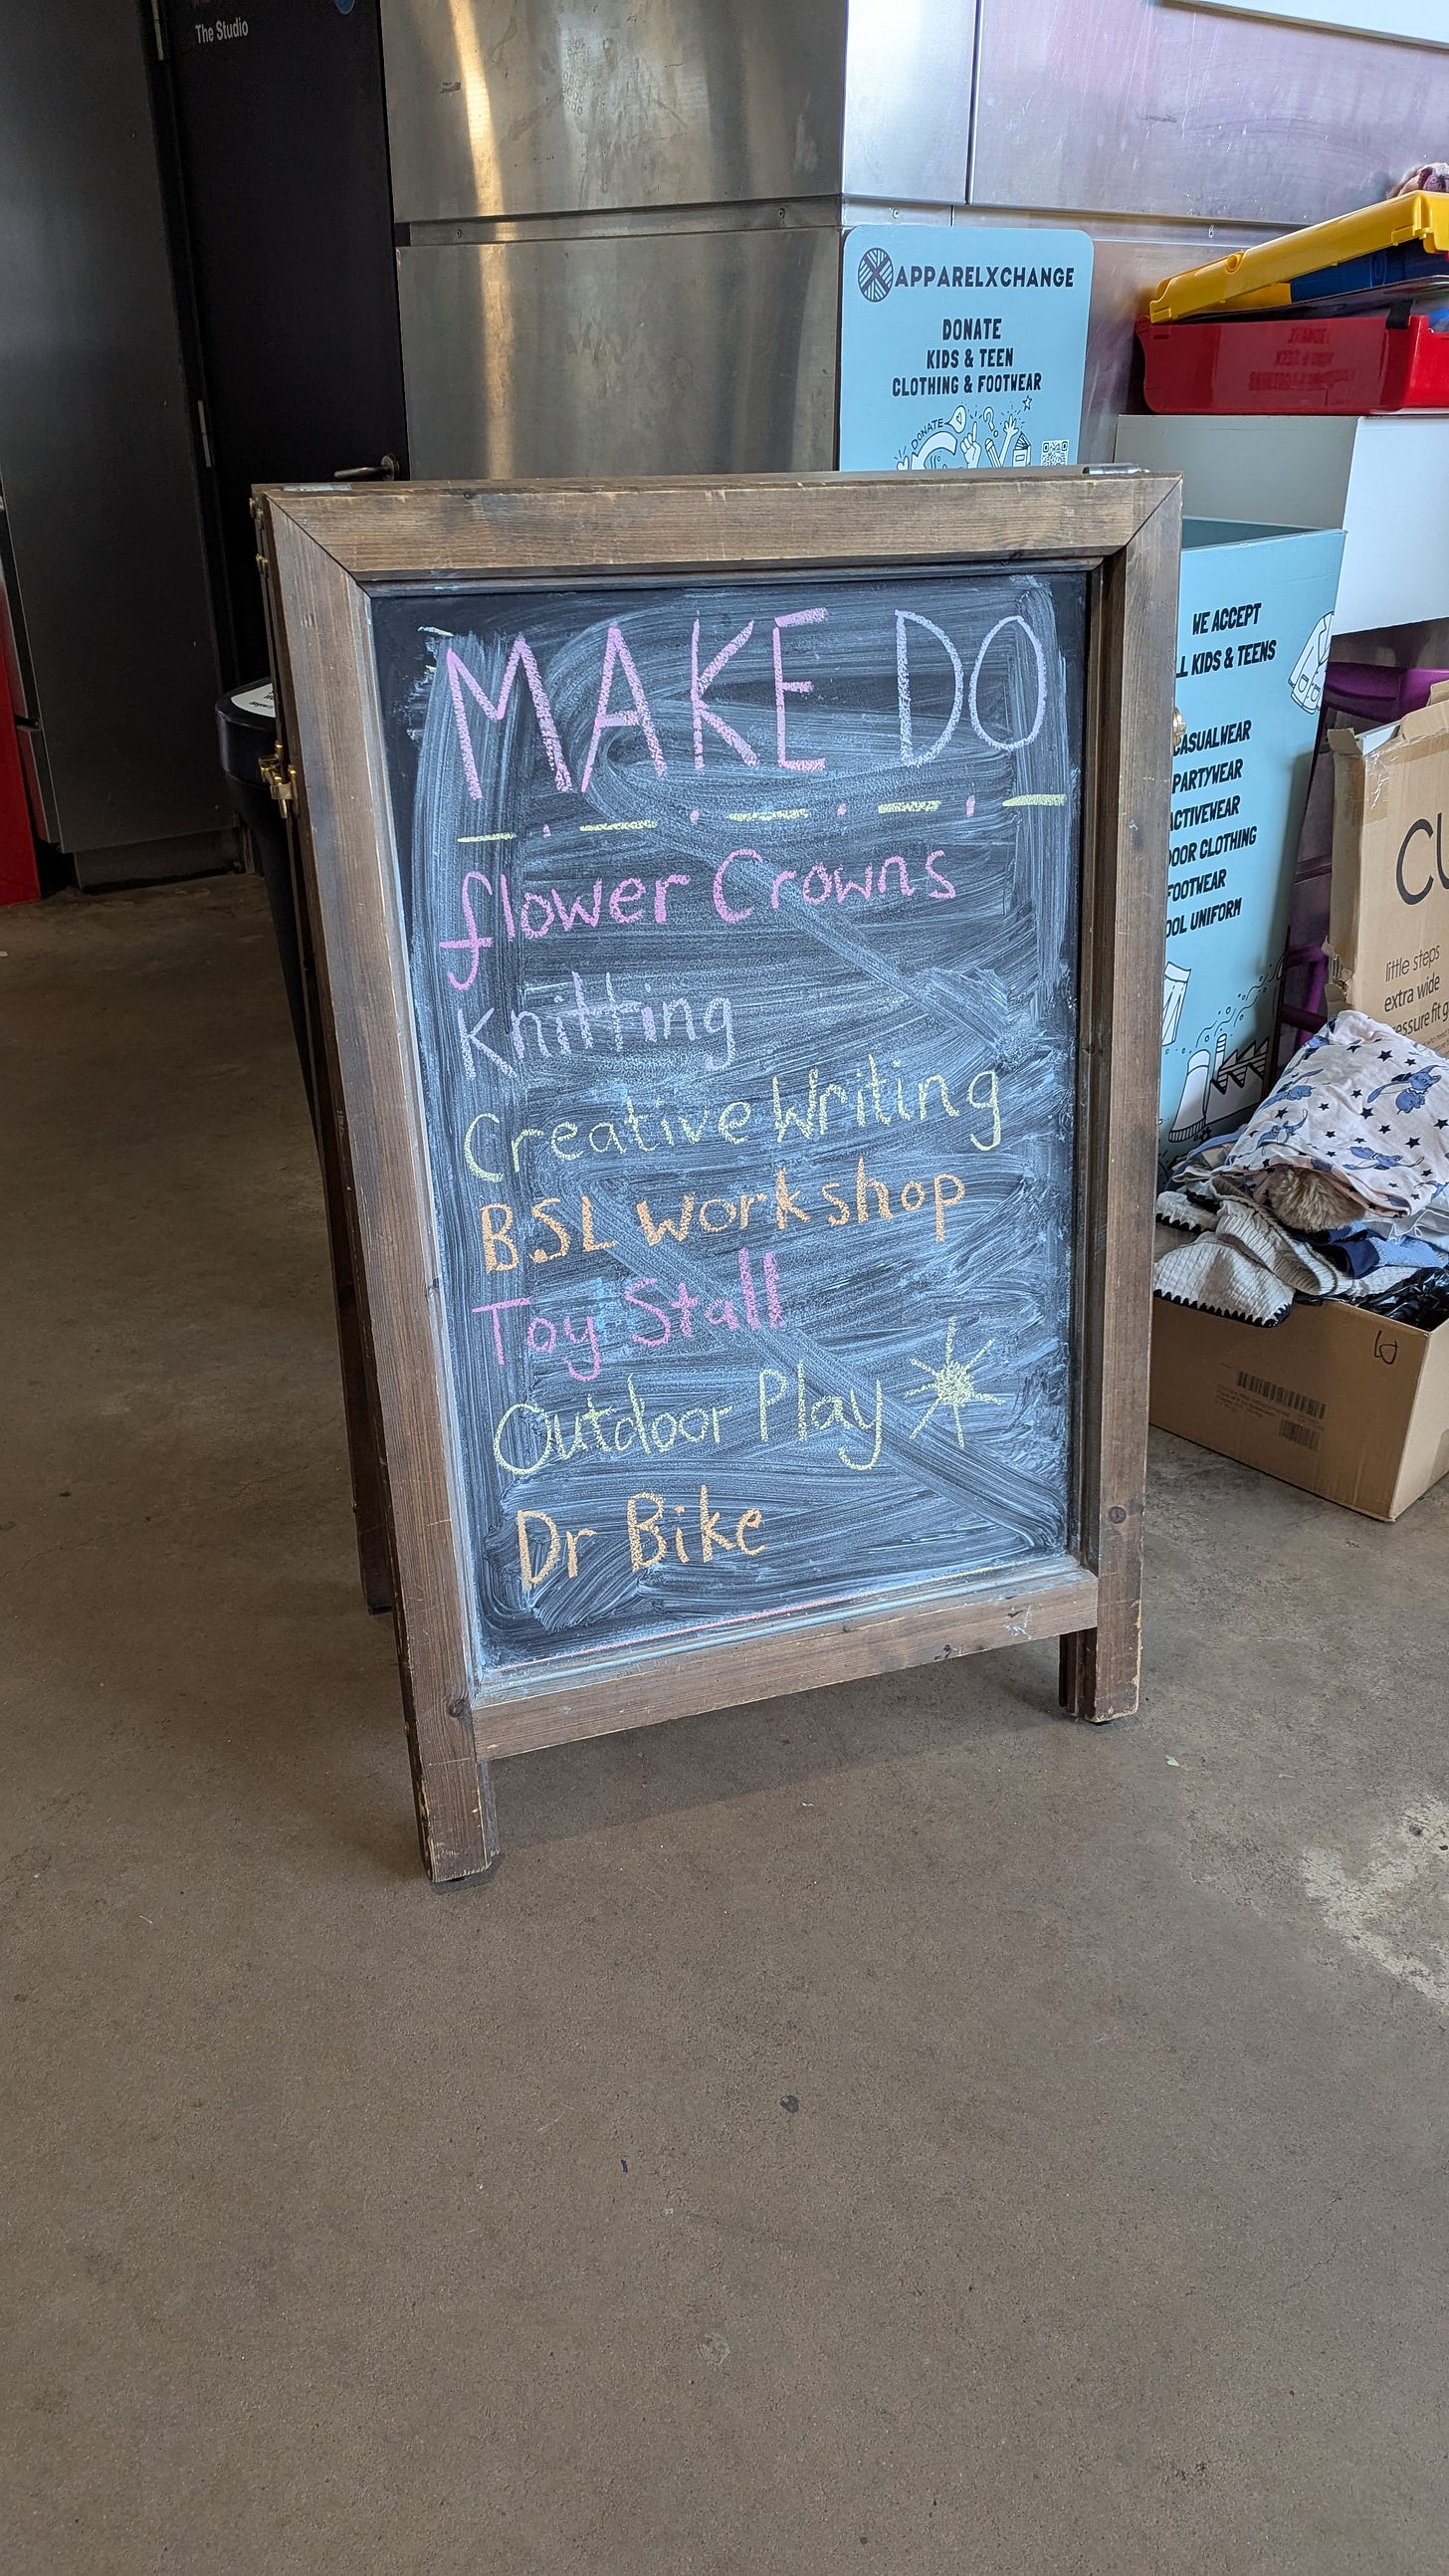 The Studio
APPARELXCHANGE
DONATE
KIDS & TEEN
CLOTHING & FOOTWEAR
DONATE
MAKE DO
flower Crowns
Knitting
Creative Writing
BSL workshop
Toy Stall
Outdoor Play
Dr Bike
WE ACCEPT
KIDS & TEENS
CASUALWEAR
PARTYWEAR
ACTIVEWEAR
OOR CLOTHING
FOOTWEAR
OOL UNIFORM
CU
little steps
extra wide
essure fit g